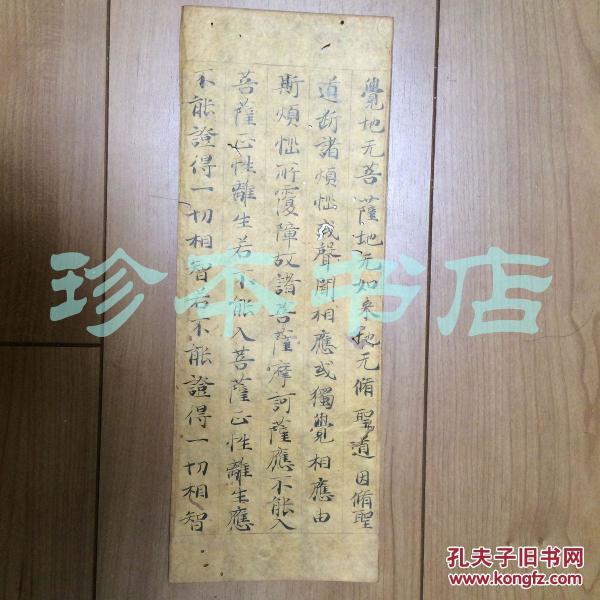 覺地无菩薩地无如来地无脩聖道因脩聖
道斷諸煩惱或聲聞相應或獨覺相應由
斯煩惱所覆障故諸菩薩摩訶薩應不能入
菩薩正性離生若不能入菩薩正性離生應
不能證得一切相智若不能證得一切相智
珍本书店
孔夫子旧书网
www.kongfz.com